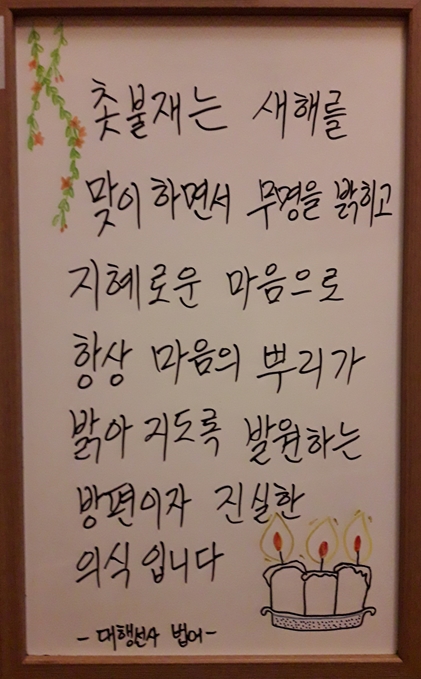 촛불재는 새해를
맞이하면서 무명을 밝히고
지혜로운 마음으로
항상 마음의 뿌리가
밝아지도록 발원하는
방편이자 진실한
의식입니다
- 대행선사 법어 -